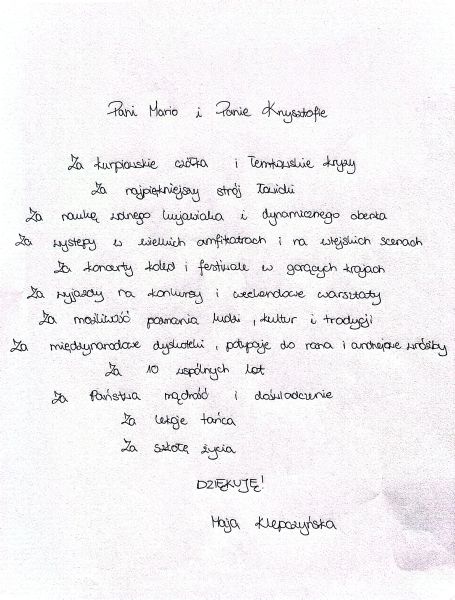 Pani Mario i Panie Krzysztofie
Za kurpiowskie czółka i Łemkowskie kryzy
Za najpiękniejszy strój Łowicki
Za naukę wolnego kujawiaka i dynamicznego oberka
Za występy w wielkich amfiteatrach i na wiejskich scenach
Za koncerty kolęd i festiwale w gorących krajach
Za wyjazdy na konkursy i weekendowe warsztaty
Za możliwość poznania ludzi, kultur i tradycji
Za międzynarodowe dyskoteki, potupaje do rana i andrzejowe wróżby
Za 10 wspólnych lat
Za Państwa mądrość i doświadczenie
Za lekcje tańca
Za szkołę życia
DZIĘKUJĘ!
Maja Klepczyńska